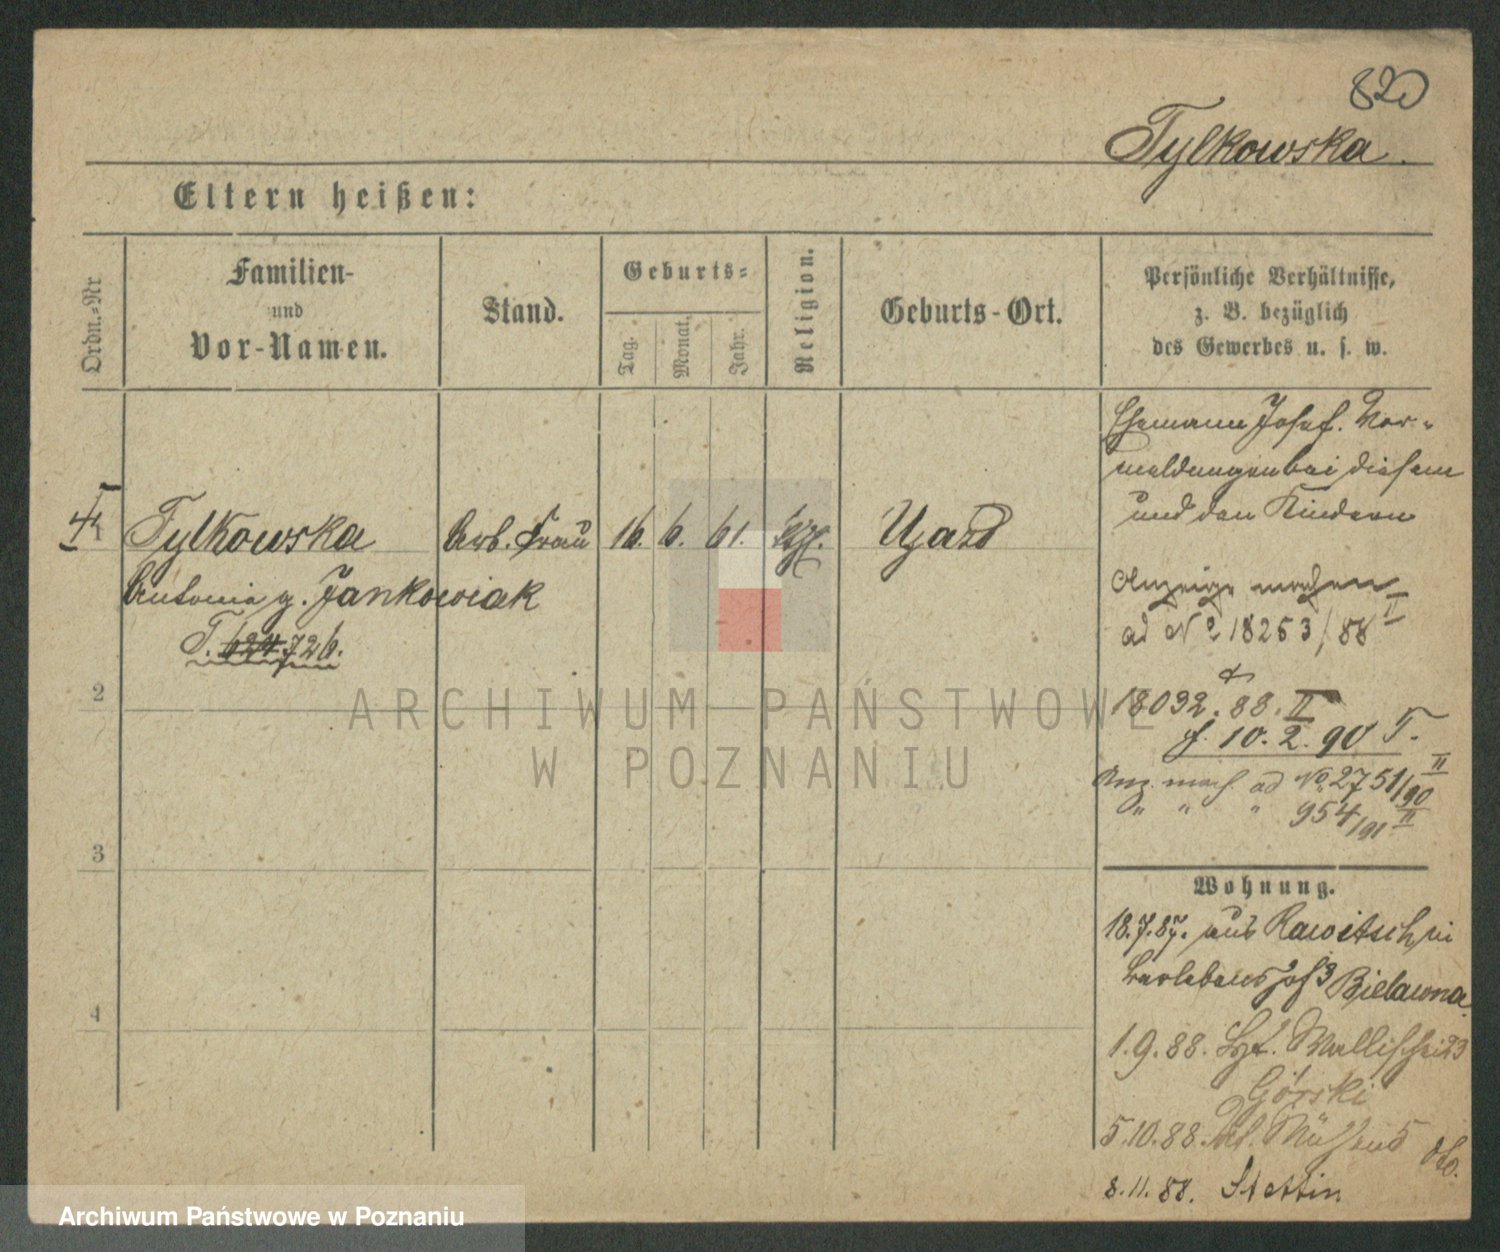 820
Tylkowska.
Eltern heißen:
Ordn.-Nr
Familien-
und
Vor-Namen.
Stand.
Geburts-
Tag.
Monat.
Jahr.
Religion.
Geburts-Ort.
Persönliche Verhältnisse,
z. B. bezüglich
des Gewerbes u. s. w.
Ehemann Josef. Ver-
meldungen bei diesem
und den Kindern
Tylkowska Arb. Frau 16. 6. 61.
Antonia g. Jankowiak
T. 624. 726.
Anzeige machen
ad No 18253/88 II
18092. 88. II
f. 10. 2. 90 T.
Anz. mach. ad No 2751/90 II
" " " 954/91 II
2
3
4
Wohnung.
18.7.87. aus Rawitsch in
3 Bielawna
1.9.88. Wallischei 23
Górski
5.10.88. 5 do.
8.11.88. Stettin
ARCHIWUM PAŃSTWOWE
W POZNANIU
Archiwum Państwowe w Poznaniu